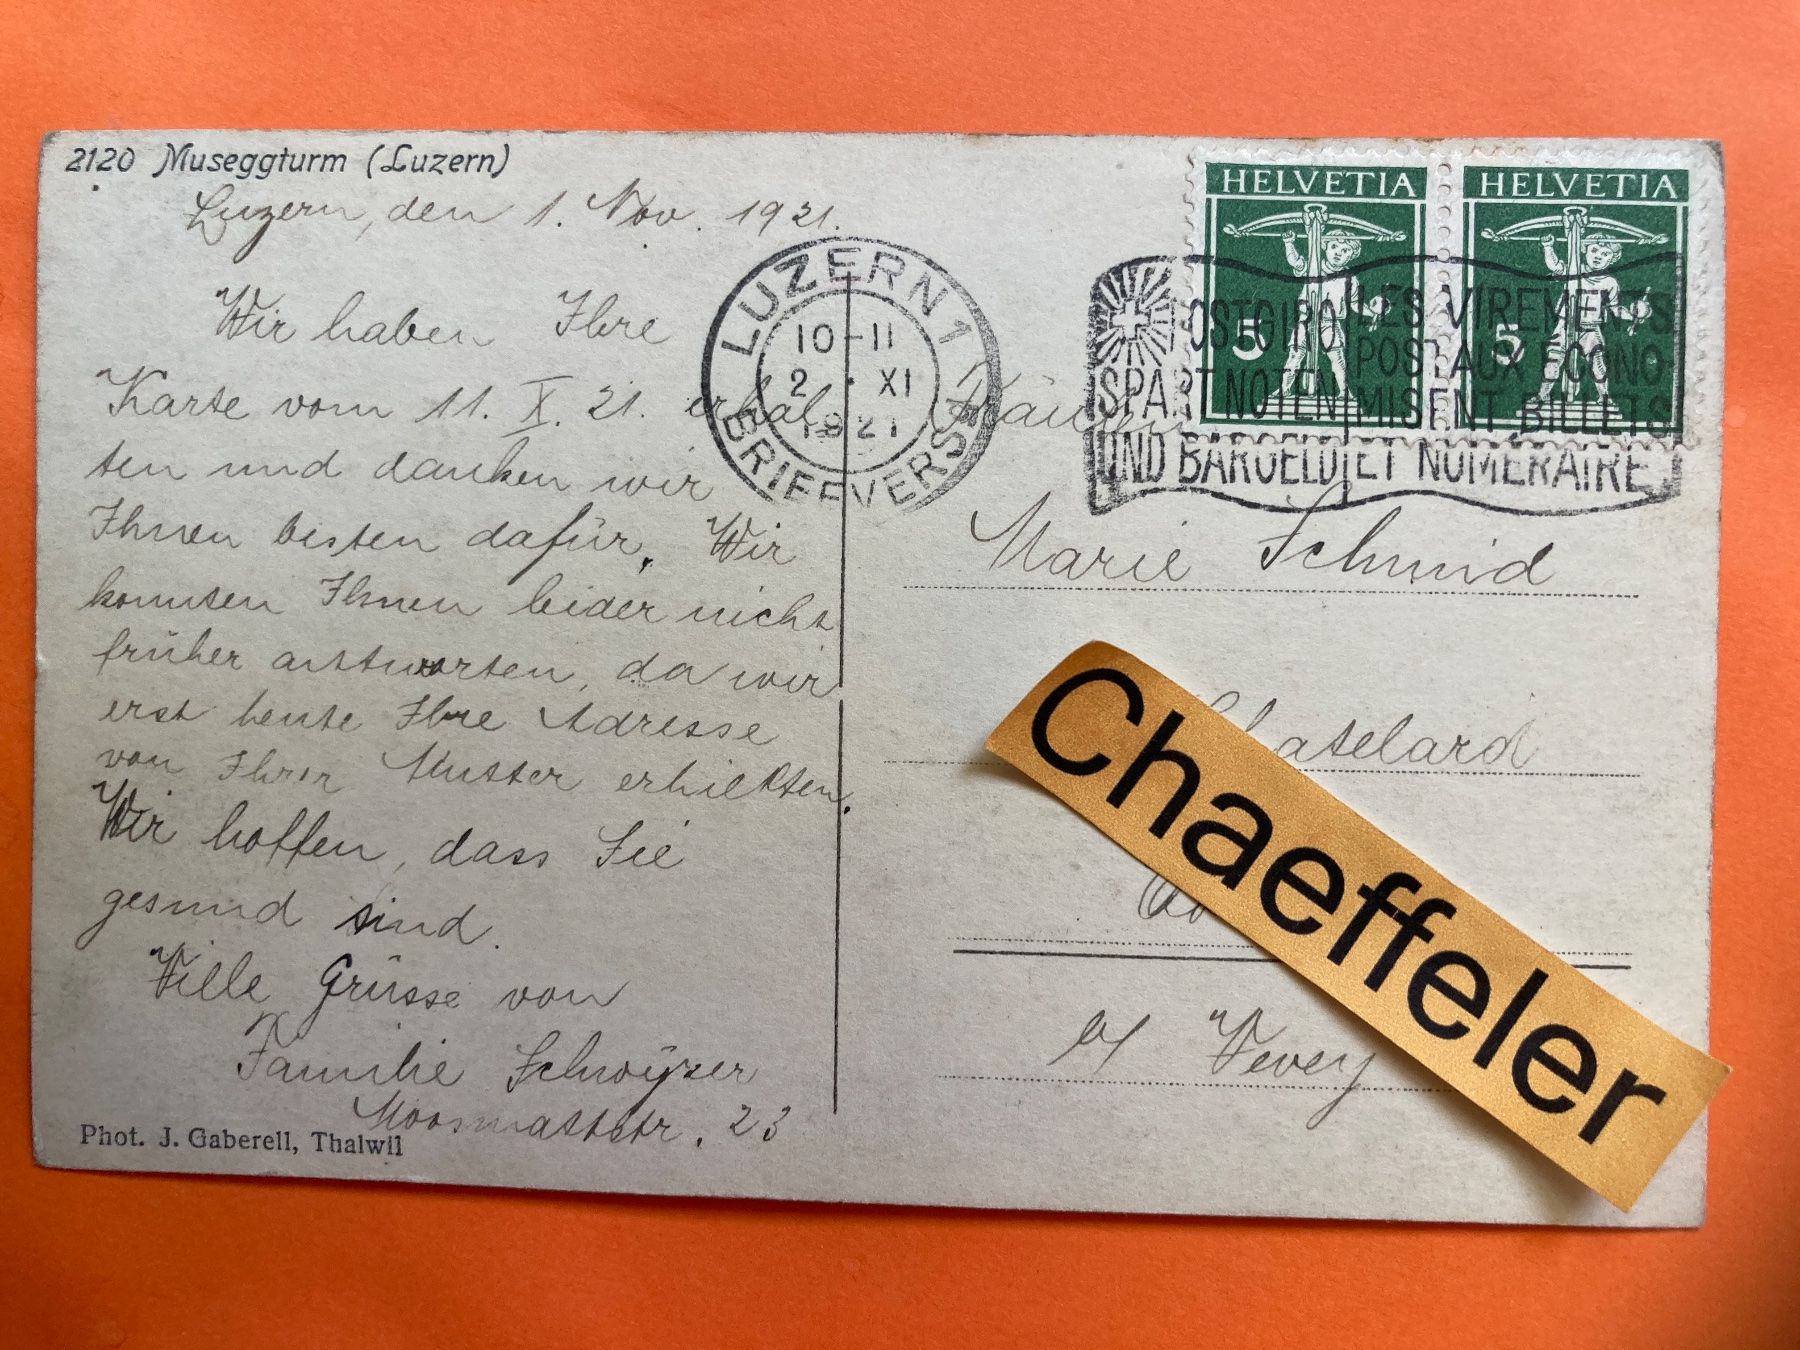 2120 Museggturm (Luzern)
Luzern, den 1. Nov. 1921.
Wir haben Ihre
Karte vom 11. X. 21. erhal
ten und danken wir
Ihnen besten dafür. Wir
konnten Ihnen leider nicht
früher antworten, da wir
erst heute Ihre Adresse
von Ihrer Mutter erhielten.
Wir hoffen, dass Sie
gesund sind.
Viele Grüsse von
Familie Schwyzer
Moosmattstr. 23
Phot. J. Gaberell, Thalwil
LUZERN 1
10-11
2 . XI
1921
BRIEFVERS
HELVETIA
5
HELVETIA
5
POSTGIRO
SPART NOTEN
UND BARGELD
LES VIREMENTS
POSTAUX ÉCONO-
MISENT BILLETS
ET NUMÉRAIRE
Fräulein
Marie Schmid
Chatelard
s/ Vevey
Chaeffeler